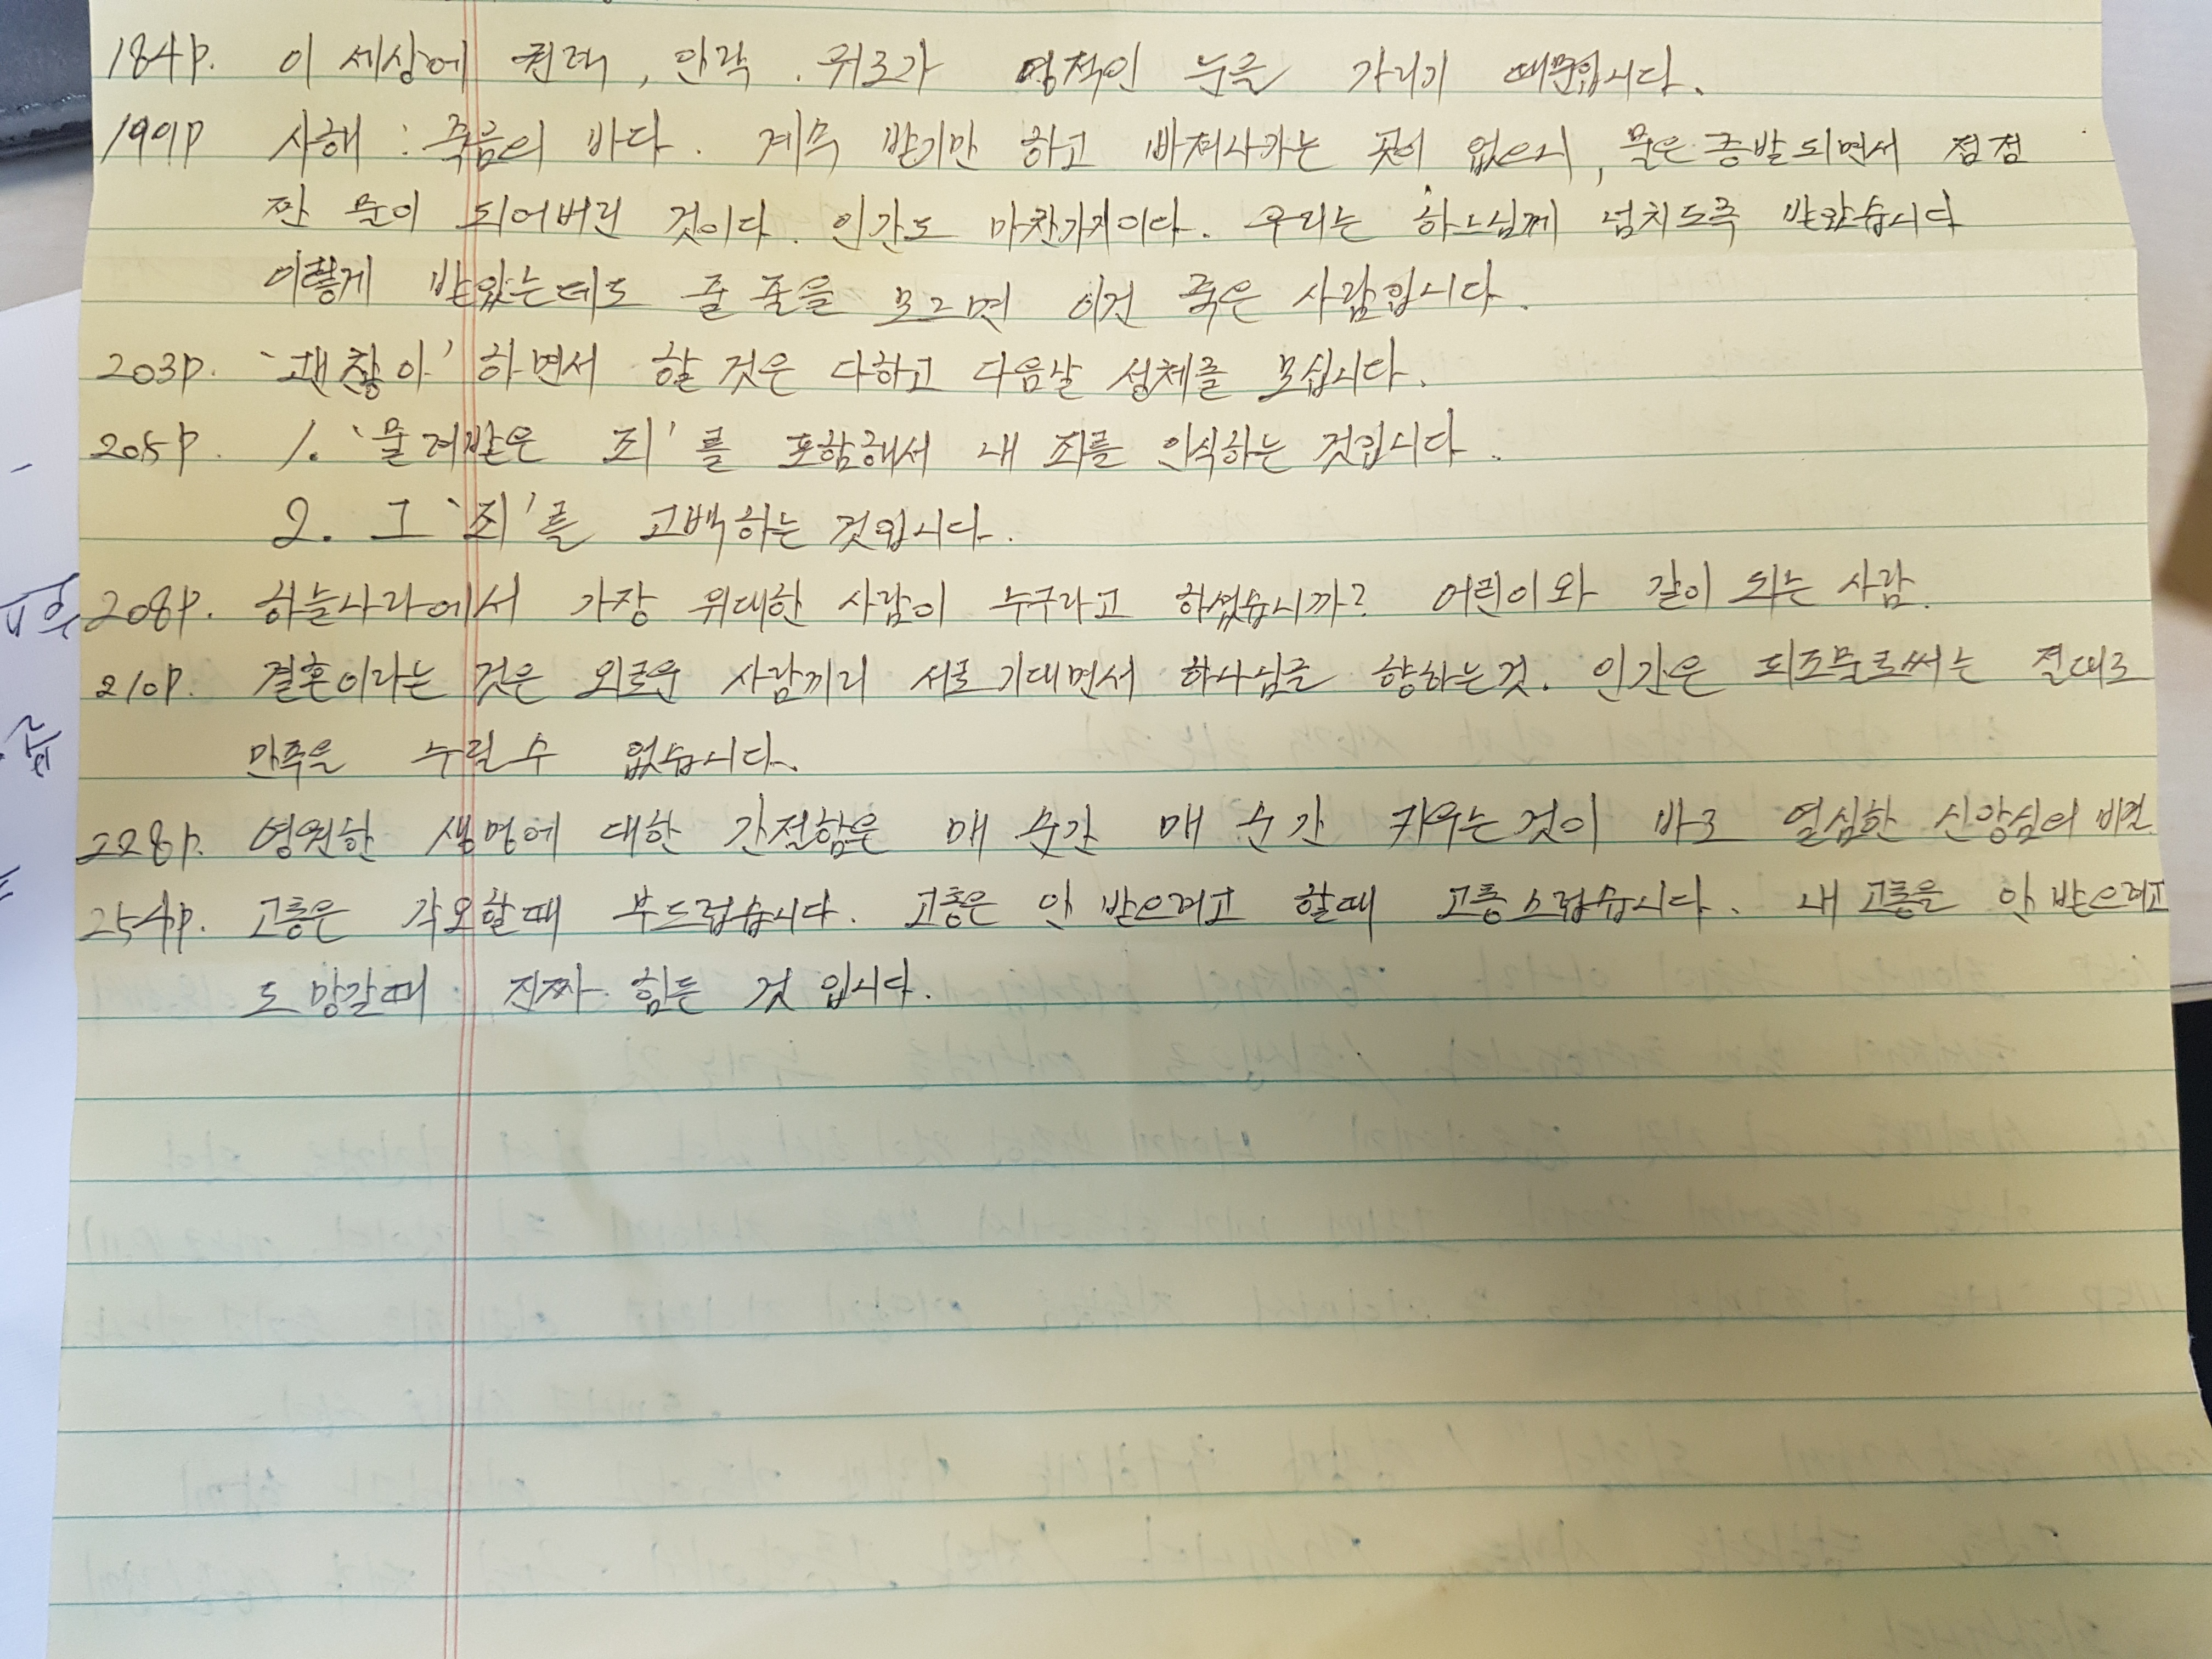 184p. 이 세상에 권력, 안락, 위로가 영적인 눈을 가리기 때문입니다.
199p 사해 : 죽음의 바다. 계속 받기만 하고 빠져나가는 곳이 없으니, 물은 증발되면서 점점
짠 물이 되어버린 것이다. 인간도 마찬가지이다. 우리는 하느님께 넘치도록 받았습니다
이렇게 받았는데도 줄 줄을 모르면 이건 죽은 사람입니다.
203p. '괜찮아' 하면서 할 것은 다하고 다음날 성체를 모십니다.
205p. 1. '물려받은 죄'를 포함해서 내 죄를 인식하는 것입니다.
2. 그 '죄'를 고백하는 것입니다.
208p. 하늘나라에서 가장 위대한 사람이 누구라고 하셨습니까? 어린이와 같이 되는 사람.
210p. 결혼이라는 것은 외로운 사람끼리 서로 기대면서 하나님을 향하는것. 인간은 피조물로써는 절대로
만족을 누릴수 없습니다.
228p. 영원한 생명에 대한 간절함을 매 순간 매 순간 키우는 것이 바로 열심한 신앙심의 비결
254p. 고통은 각오할때 부드럽습니다. 고통은 안 받으려고 할때 고통스럽습니다. 내 고통을 안 받으려고
도망갈때 진짜 힘든 것 입니다.